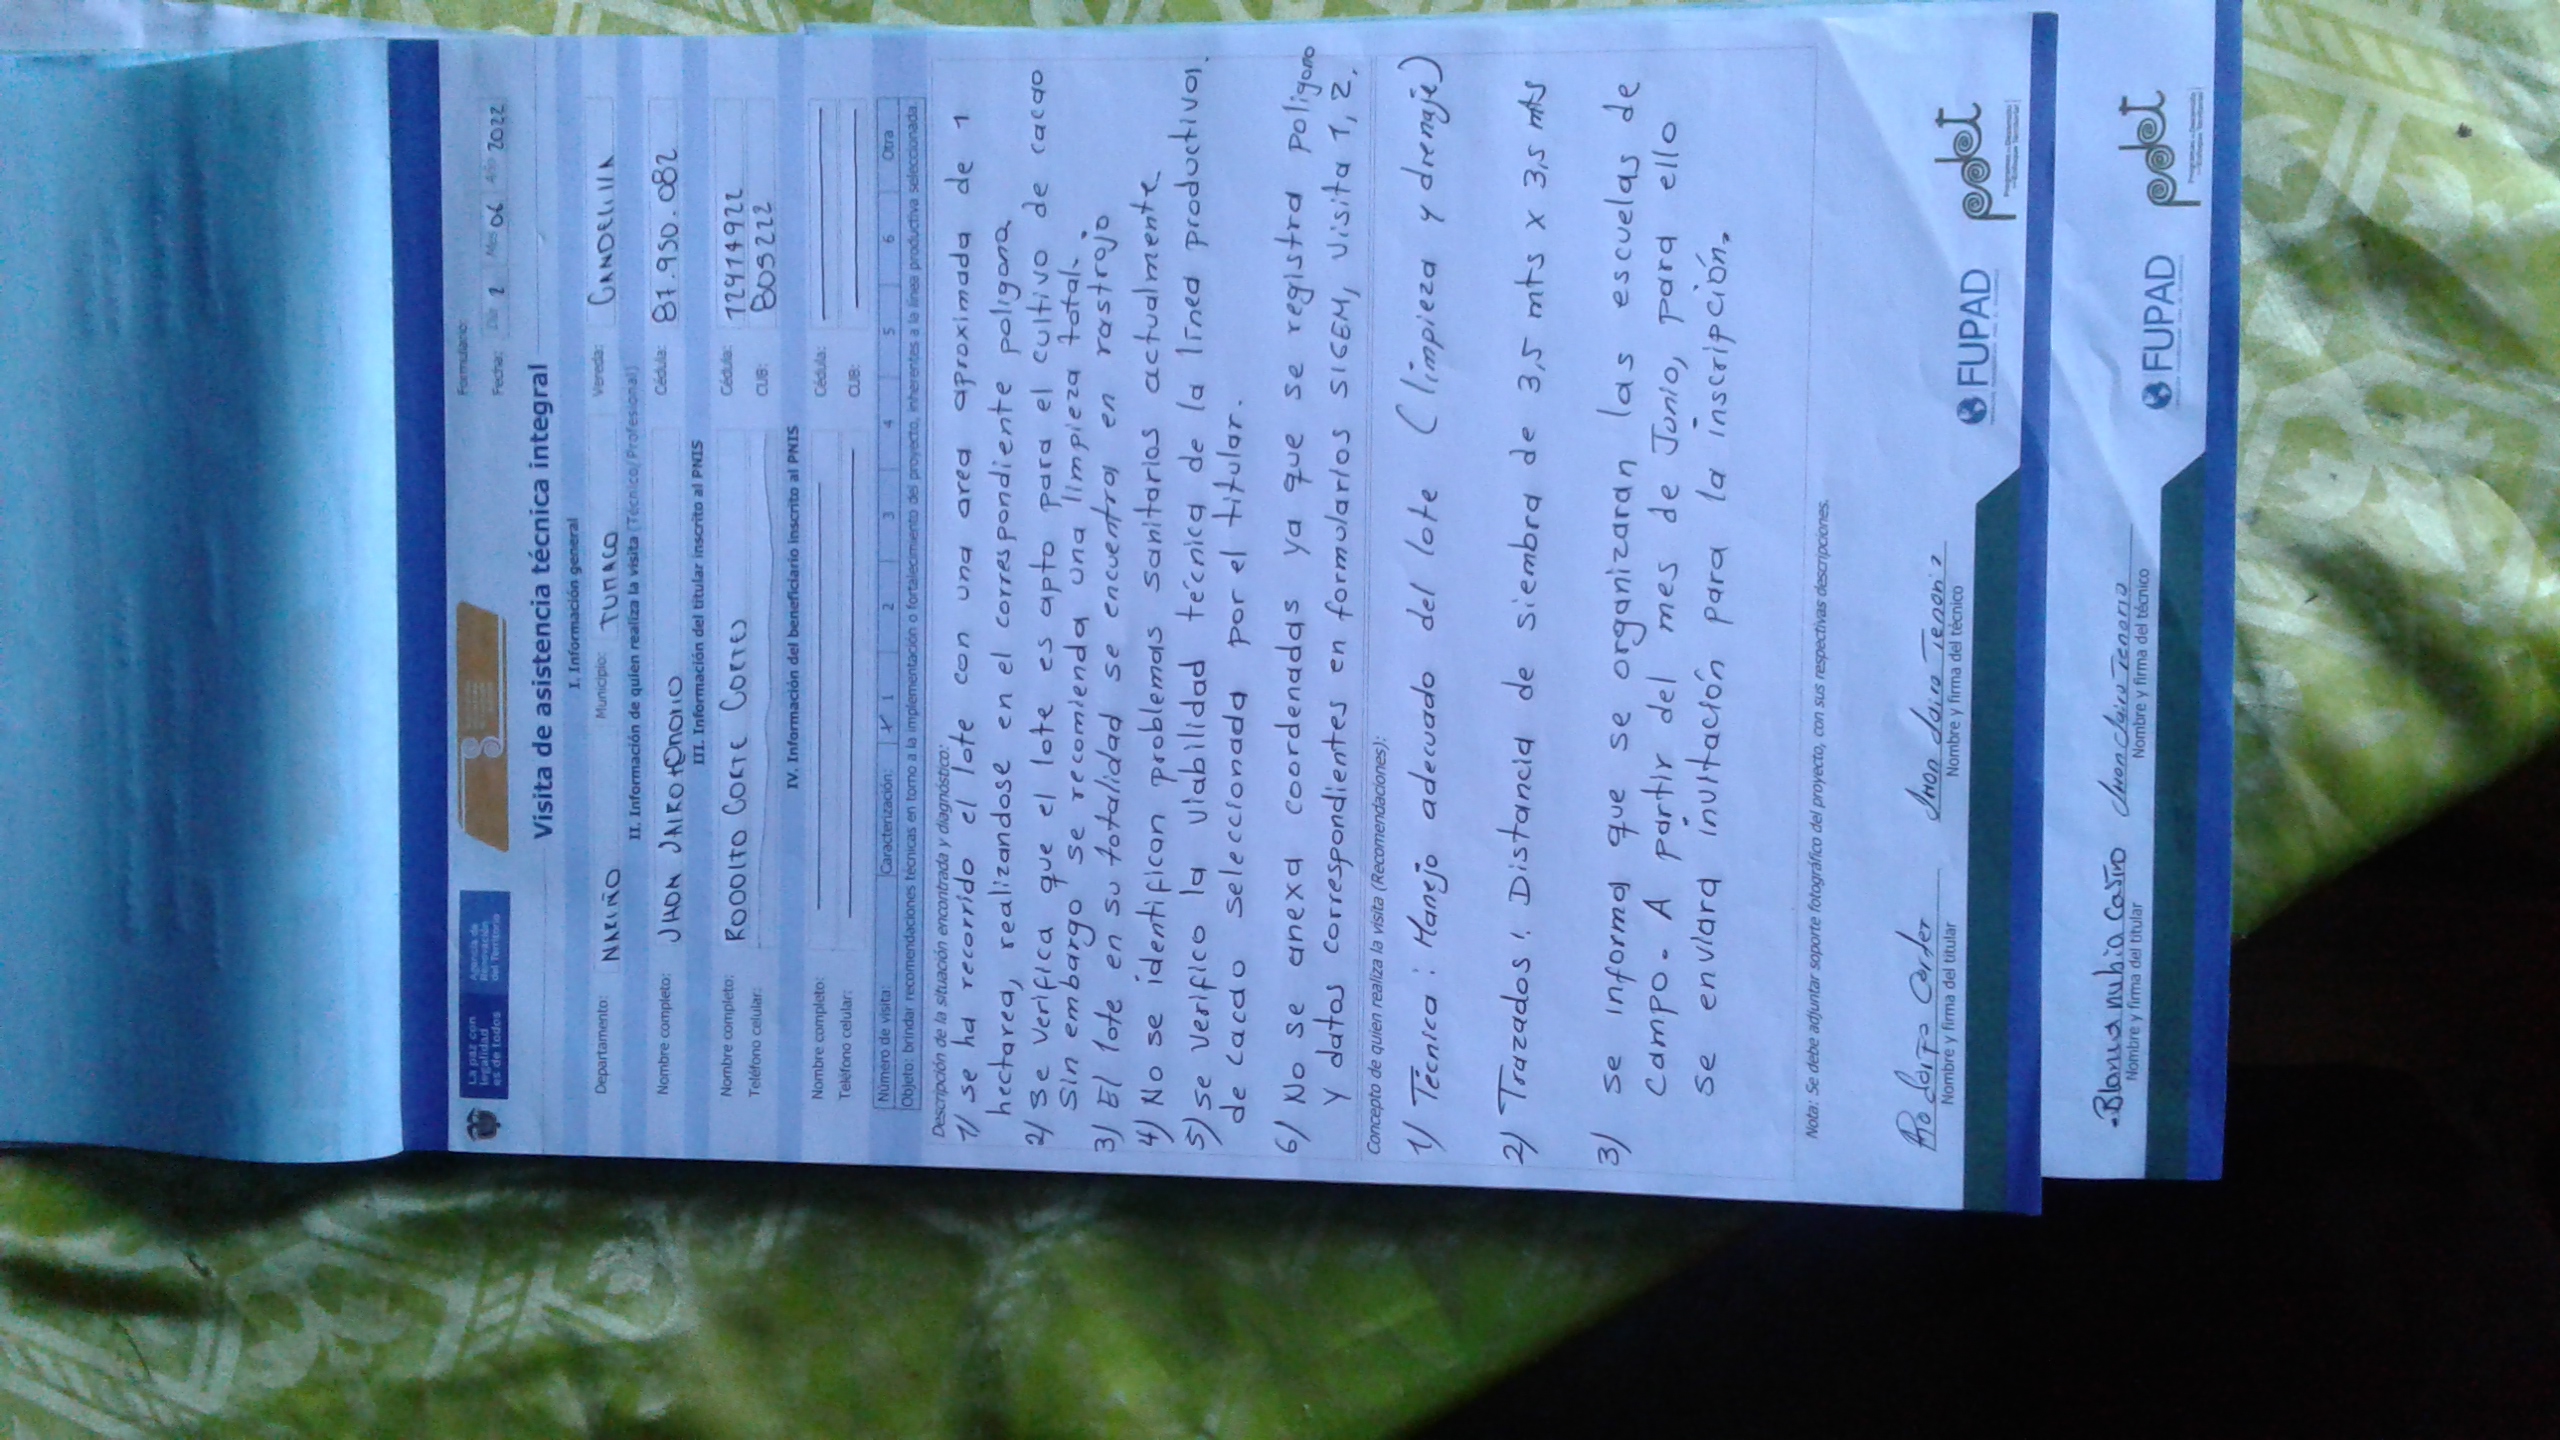 La paz con legalidad es de todos
Agencia de Renovación del Territorio
Formulario:
Fecha: Día 2 Mes 06 Año 2022
Visita de asistencia técnica integral
I. Información general
Departamento: NARIÑO Municipio: TUMACO Vereda: CANDELILLA
II. Información de quien realiza la visita (Técnico/Profesional)
Nombre completo: JHON JAIRO tEnorio Cédula: 87.950.082
III. Información del titular inscrito al PNIS
Nombre completo: RODOLFO CORTE CORTES Cédula: 12414922
Teléfono celular: CUB: BOS222
IV. Información del beneficiario inscrito al PNIS
Nombre completo: Cédula:
Teléfono celular: CUB:
Número de visita: Caracterización: X 1 2 3 4 5 6 Otra
Objeto: brindar recomendaciones técnicas en torno a la implementación o fortalecimiento del proyecto, inherentes a la línea productiva seleccionada.
Descripción de la situación encontrada y diagnóstico:
1) se ha recorrido el lote con una area aproximada de 1
hectarea, realizandose en el correspondiente poligona
2) se verifica que el lote es apto para el cultivo de cacao
sin embargo se recomienda una limpieza total.
3) El lote en su totalidad se encuentra en rastrojo
4) No se identifican problemas sanitarios actualmente
5) se verifico la viabilidad técnica de la línea productiva.
de cacao seleccionada por el titular.
6) No se anexa coordenadas ya que se registra Poligono
y datos correspondientes en formularios SIGEM, visita 1, 2,
Concepto de quien realiza la visita (Recomendaciones):
1) Técnica: Manejo adecuado del lote (limpieza y drenaje)
2) Trazados: Distancia de siembra de 3,5 mts x 3,5 mts
3) se informa que se organizaran las escuelas de
campo. A partir del mes de Junio, para ello
se enviara invitación para la inscripción.
Nota: Se debe adjuntar soporte fotográfico del proyecto, con sus respectivas descripciones.
Nombre y firma del titular
Jhon Jairo Tenorio
Nombre y firma del técnico
FUPAD
pdet
Blanca nubia Castro
Nombre y firma del titular
Jhon Jairo Tenorio
Nombre y firma del técnico
FUPAD
pdet